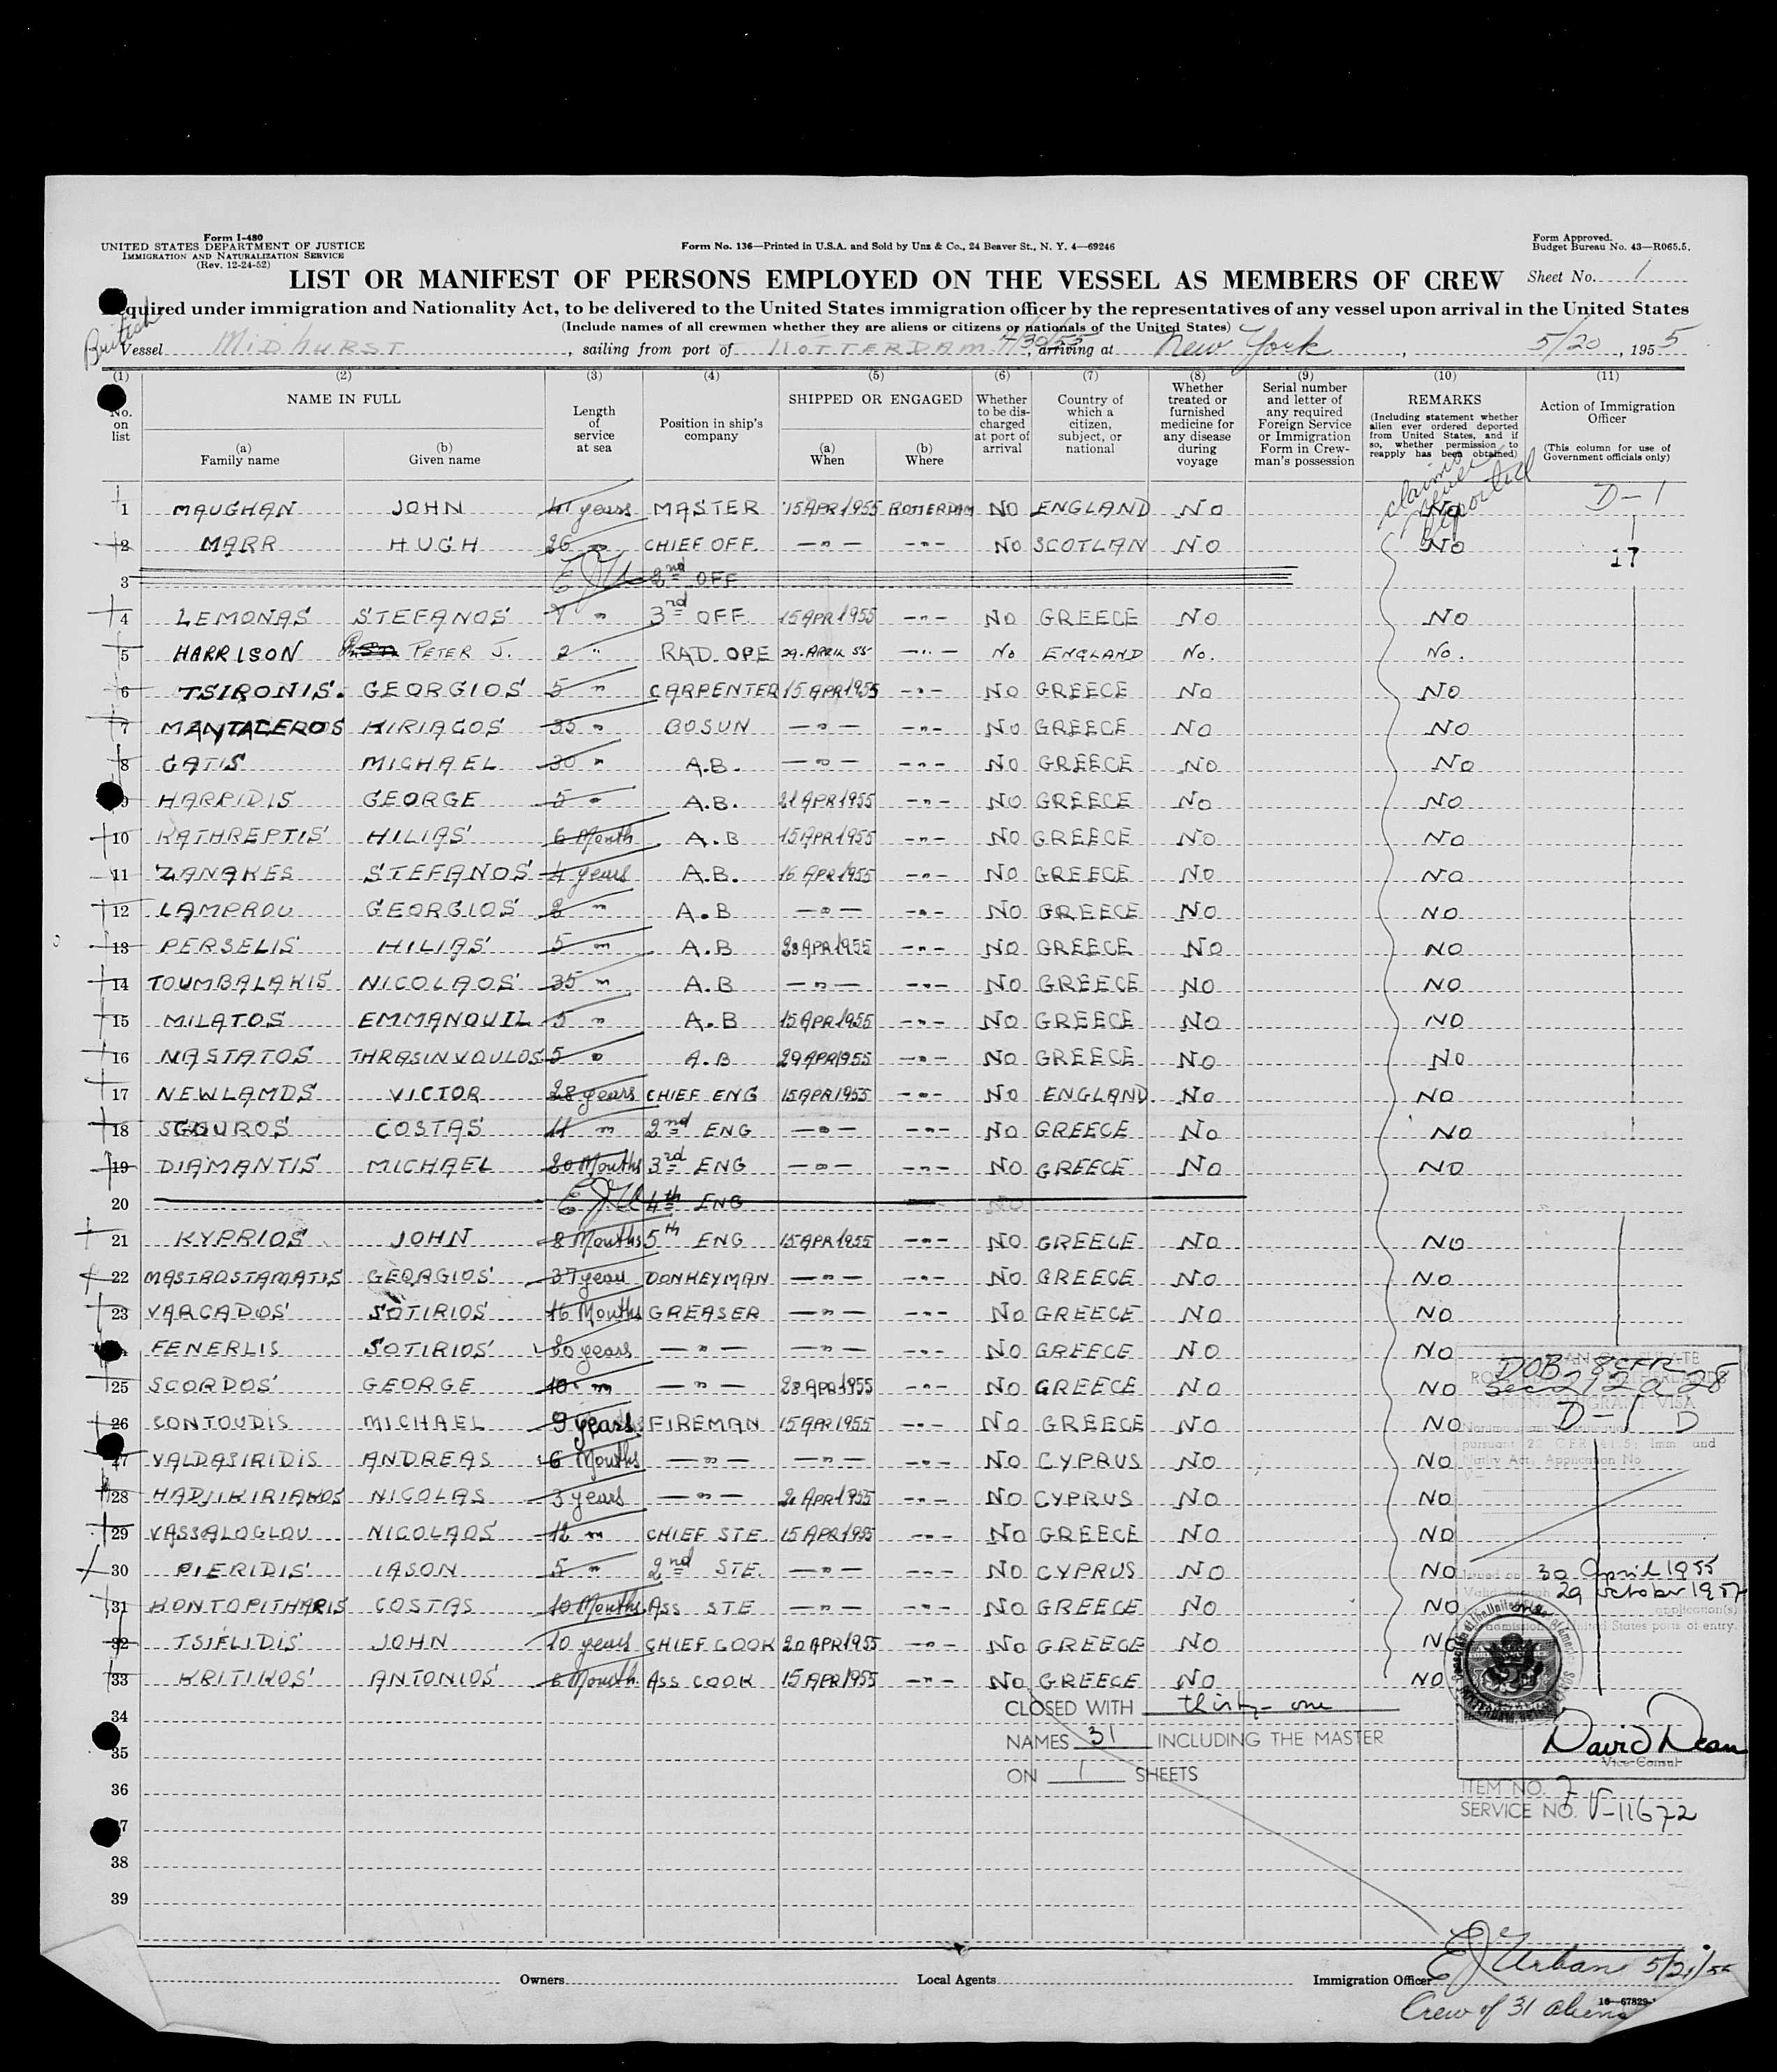 Form I-480
UNITED STATES DEPARTMENT OF JUSTICE
IMMIGRATION AND NATURALIZATION SERVICE
(Rev. 12-24-52)
Form No. 136—Printed in U.S.A. and Sold by Unz & Co., 24 Beaver St., N. Y. 4—69246
Form Approved.
Budget Bureau No. 43—R065.5.
LIST OR MANIFEST OF PERSONS EMPLOYED ON THE VESSEL AS MEMBERS OF CREW
Sheet No. 1
quired under immigration and Nationality Act, to be delivered to the United States immigration officer by the representatives of any vessel upon arrival in the United States
(Include names of all crewmen whether they are aliens or citizens or nationals of the United States)
British
Vessel MIDHURST, sailing from port of ROTTERDAM 4/30/55, arriving at New York, 5/20, 1955
(1) (2) (3) (4) (5) (6) (7) (8) (9) (10) (11)
No. on list
NAME IN FULL
(a) Family name
(b) Given name
Length of service at sea
Position in ship's company
SHIPPED OR ENGAGED
(a) When
(b) Where
Whether to be discharged at port of arrival
Country of which a citizen, subject, or national
Whether treated or furnished medicine for any disease during voyage
Serial number and letter of any required Foreign Service or Immigration Form in Crewman's possession
REMARKS
(Including statement whether alien ever ordered deported from United States, and if so, whether permission to reapply has been obtained)
Action of Immigration Officer
(This column for use of Government officials only)
claim never deported
1 MAUGHAN JOHN 41 years MASTER 15 APR 1955 ROTTERDAM NO ENGLAND NO NO D-1
2 MARR HUGH 26 " CHIEF OFF. — " — — " — NO SCOTLAN NO NO 17
3 EJU 2nd OFF
4 LEMONAS STEFANOS 7 " 3rd OFF. 15 APR 1955 — " — NO GREECE NO NO
5 HARRISON PETER J. 2 " RAD. OPE 29. APRIL 55 — " — No ENGLAND No. No.
6 TSIRONIS. GEORGIOS 5 " CARPENTER 15 APR 1955 — " — NO GREECE NO NO
7 MANTACEROS KIRIACOS 35 " BOSUN — " — — " — NO GREECE NO NO
8 GATIS MICHAEL 30 " A.B. — " — — " — NO GREECE NO NO
9 HARPIDIS GEORGE 5 " A.B. 21 APR 1955 — " — NO GREECE NO NO
10 KATHREPTIS HILIAS 6 Month A.B 15 APR 1955 — " — NO GREECE NO NO
11 ZANAKES STEFANOS 4 years A.B. 16 APR 1955 — " — NO GREECE NO NO
12 LAMPROU GEORGIOS 8 " A.B — " — — " — NO GREECE NO NO
13 PERSELIS HILIAS 5 " A.B 28 APR 1955 — " — NO GREECE NO NO
14 TOUMBALAKIS NICOLAOS 35 " A.B — " — — " — NO GREECE NO NO
15 MILATOS EMMANOUIL 5 " A.B 15 APR 1955 — " — NO GREECE NO NO
16 NASTATOS THRASINVOULOS 5 " A.B 29 APR 1955 — " — NO GREECE NO NO
17 NEWLAMDS VICTOR 28 years CHIEF ENG 15 APR 1955 — " — NO ENGLAND. NO NO
18 SGOUROS COSTAS 11 " 2nd ENG — " — — " — NO GREECE NO NO
19 DIAMANTIS MICHAEL 20 Mouths 3rd ENG — " — — " — NO GREECE NO NO
20 EJU 4th ENG NO
21 KYPRIOS JOHN 8 Mouths 5th ENG 15 APR 1955 — " — NO GREECE NO NO
22 MASTROSTAMATIS GEORGIOS 37 years DONKEYMAN — " — — " — NO GREECE NO NO
23 VARCADOS SOTIRIOS 16 Mouths GREASER — " — — " — NO GREECE NO NO
FENERLIS SOTIRIOS 20 years — " — — " — — " — NO GREECE NO NO
25 SCORDOS GEORGE 10 " — " — 28 APR 1955 — " — NO GREECE NO NO
26 CONTOUDIS MICHAEL 9 years FIREMAN 15 APR 1955 — " — NO GREECE NO NO
27 VALDASIRIDIS ANDREAS 6 Mouths — " — — " — — " — NO CYPRUS NO NO
28 HADJIKIRIAKOS NICOLAS 3 years — " — 21 APR 1955 — " — NO CYPRUS NO NO
29 VASSALOGLOU NICOLAOS 12 " CHIEF STE. 15 APR 1955 — " — NO GREECE NO NO
30 PIERIDIS IASON 5 " 2nd STE. — " — — " — NO CYPRUS NO NO
31 KONTOPITHARIS COSTAS 10 Mouths ASS STE — " — — " — NO GREECE NO NO
32 TSIFLIDIS JOHN 10 years CHIEF COOK 20 APR 1955 — " — NO GREECE NO NO
33 KRITIKOS ANTONIOS 6 Mouth ASS COOK 15 APR 1955 — " — NO GREECE NO NO
DOB 8 CFR
Sec 212 a 28
D-1 D
NONIMMIGRANT VISA
Issued on 30 April 1955
Valid through 29 October 1957
application(s)
admission United States ports of entry.
David Dean
Vice-Consul
ITEM NO. 7
SERVICE NO. V-11672
34
CLOSED WITH thirty-one
NAMES 31 INCLUDING THE MASTER
ON 1 SHEETS
35
36
37
38
39
Owners
Local Agents
Immigration Officer EJ Urban 5/21/55
16—67829-1
Crew of 31 aliens